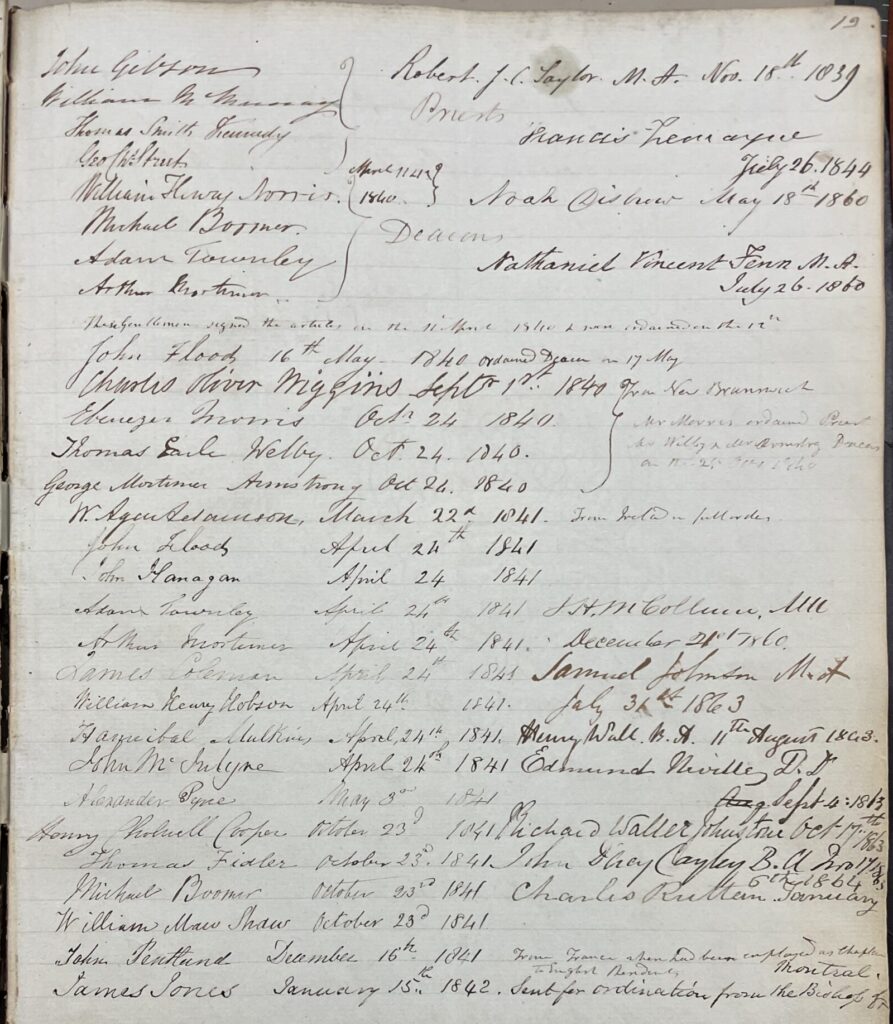 19.
John Gibson
Robert. J. C. Taylor. M. A. Nov. 18th 1839
William McMurray
Priests
Thomas Smith Kennedy
Francis Lemayne
Geo. Street
July 26. 1844
April 11th
William Henry Norris.
1840.
Noah Disbrow May 18th 1860
Michael Boomer.
Deacons
Adam Townley
Nathaniel Vincent Fenn M. A.
Arthur Mortimer
July 26. 1860
These Gentlemen signed the articles on the 11 April 1840 & were ordained on the 12th
John Flood 16th May 1840 ordained Deacon on 17 May
Charles Oliver Wiggins Septr 1st. 1840 from New Brunswick
Ebenezer Morris Octr 24 1840.
Mr Morris ordained Priest
Thomas Earle Welby. Oct. 24. 1840.
Mr Welby & Mr Armstrong Deacons
on the 25 Oct 1840
George Mortimer Armstrong Oct 24. 1840
W. Agar Adamson, March 22d 1841. From Ireland in full orders
John Flood April 24th 1841
John Flanagan April 24 1841
Adam Townley April 24th 1841 J. H. McCollum,
Arthur Mortimer April 24th 1841. December 21st 1860.
James Coleman April 24th 1841 Samuel Johnson M. A
William Henry Hobson April 24th 1841. July 31st 1863
Hannibal Mulkins April, 24th 1841. Henry Wall. B. A. 11th August 1863.
John McIntyre April 24th 1841 Edmund Neville, D. D
Alexander Pyne May 3rd 1841 Aug Sept 4: 1863
Henry Cholwell Cooper October 23d 1841 Richard Waller Johnstone Oct 17th 1863
Thomas Fidler October 23d. 1841. John D'Arcy Cayley B. A Nov 17/63
6th 1864
Michael Boomer October 23rd 1841 Charles Ruttan January
William Maw Shaw October 23d 1841
John Pentland December 16th. 1841 From France where had been employed as chaplain
to English Residents
Montreal.
James Jones January 15th. 1842. Sent for ordination from the Bishop of